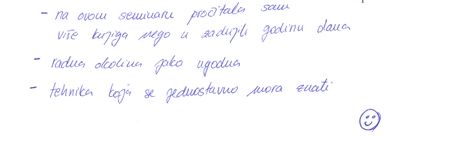 - na ovom seminaru pročitala sam
više knjiga nego u zadnjih godinu dana
- radna okolina jako ugodna
- tehnika koja se jednostavno mora znati